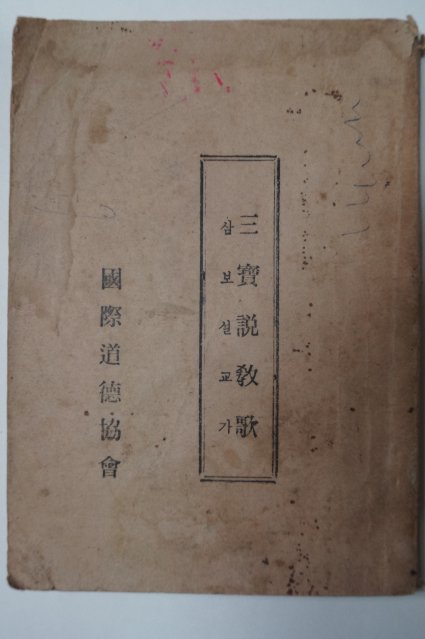 三寶說教歌
삼보설교가
國際道德協會